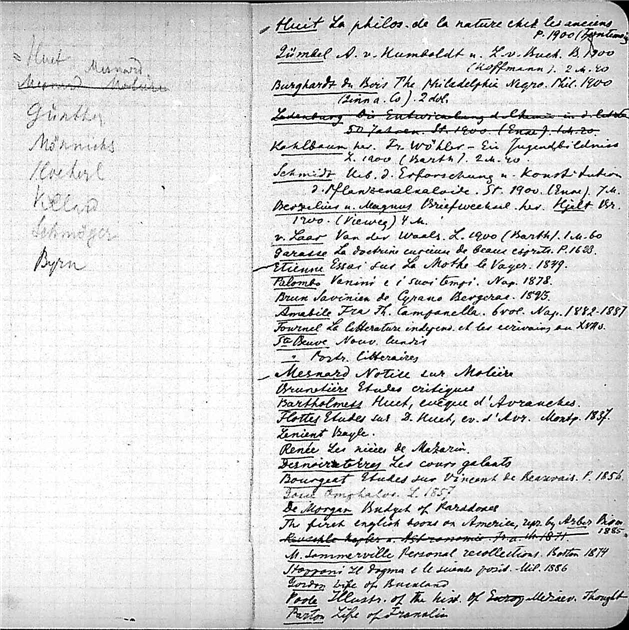 = Huit
Mesnard
Mesnard Molière
Günther
Mönnichs
Villard
Schmöger
Byrn
Huit La philos. de la nature chez les anciens
P. 1900 (Fontemoing
Gümbel A. v. Humboldt u. L. v. Buch. B. 1900
(Hoffmann). 2 M. 40
Burghardt du Bois The Philadelphia Negro. Phil. 1900
(Ginn a. Co). 2 dol.
Ladenburg Die Entwicklung d. Chemie in d. letzten
20 Jahren. St. 1900. (Enke). 1 M. 20.
Kahlbaum her. Fr. Wöhler – Ein Jugendbildniss
L. 1900 (Barth). 2 M. 40.
Schmidt Ueb. d. Erforschung u. Konstitution
d. Pflanzenalkaloide. St. 1900. (Enke). 7 M.
Berzelius u. Magnus Briefwechsel. her. Hjelt Br.
1900. (Vieweg) 4 M.
v. Laar Van der Waals. L. 1900 (Barth). 1 M. 60
Garasse La doctrine curieuse de beaux esprits. P. 1623.
Etienne Essai sur La Mothe le Vayer. 1849.
Palumbo Vanini e i suoi tempi. Nap. 1878.
Brun Savinien de Cyrano Bergerac. 1893.
Amabile Fra Th. Campanella. 6 vol. Nap. 1882-1887
Fournel La littérature indépend. et les écrivains au XVII s.
Ste Beuve Nouv. lundis
" Portr. littéraires
Mesnard Notice sur Molière
Brunetière Etudes critiques
Bartholmess Huet, evêque d'Avranches.
Flottes Etudes sur D. Huet, ev. d'Avr. Montp. 1857.
Lenient Bayle.
Renée Les nièces de Mazarin.
Desnoiresterres Les cours galants
Bourgeat Etudes sur Vincent de Beauvais. P. 1856.
Gosse Omphalos. L. 1857
De Morgan Budget of Paradoxes
The first english books on America, repr. by Arber Birm.
1885.
Reuschle Kepler u. d. Astronomie. Fr. a. M. 1871.
M. Sommerville Personal recollections. Boston 1874
Stoppani Il dogma e le scienze posit. Mil. 1886
Gordon Life of Buckland
Poole Illustr. of the hist. of Mediaev. Thought
Parton Life of Franklin